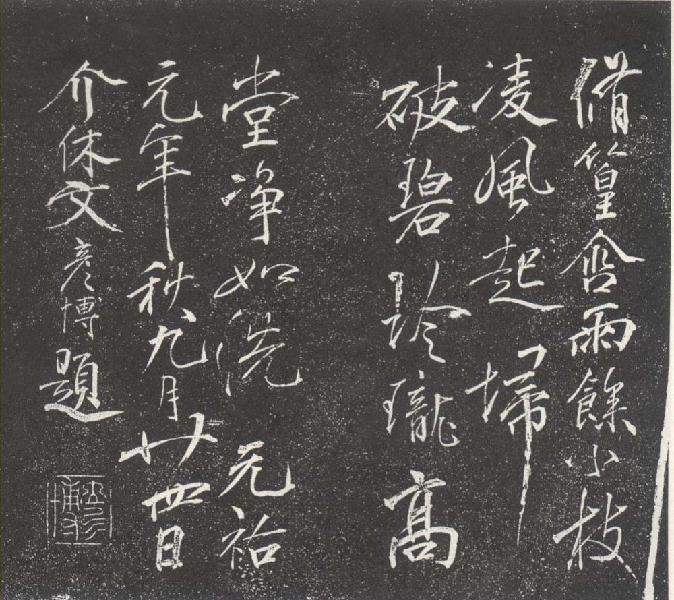 脩篁含雨餘小枝
凌風起掃
破碧玲瓏高
堂淨如洗 元祐
元年秋九月廿四日
介休文彥博題